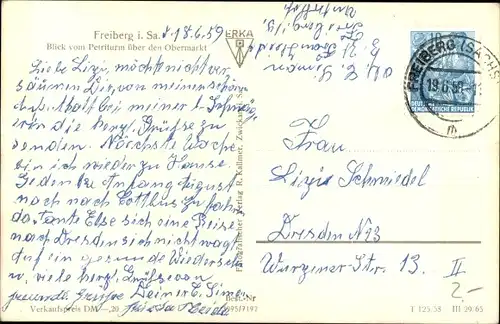 Freiberg i. Sa., d. 18.6.59
Blick vom Petriturm über den Obermarkt
ERKA
Liebe Lizi, möcht nicht ver
säumen Dir, von meinem schönen
bei meiner l. Schwäge
rin die herzl. Grüße zu
senden. Nächste Woche
bin ich wieder zu Hause.
Gedenke Anfang August
nach nach Cottbus zu fahren
da Tante Else sich eine Reise
nach Dresden sich nicht wagt.
Auf ein gesunde Wiederseh
n, viele herzl. Grüße von
Deiner E. Simon
Freundl. Grüße
Verkaufspreis DM —.20
Best.-Nr.
Fotografischer Verlag R. Kallmer, Zwickau
FREIBERG (SACHS)
DEUTSCHE
DEMOKRATISCHE REPUBLIK
Frau
Lizzi Schmiedel
Dresden N 23
Wurzener Str. 13. II
2,-
T 125.58 III 29/65